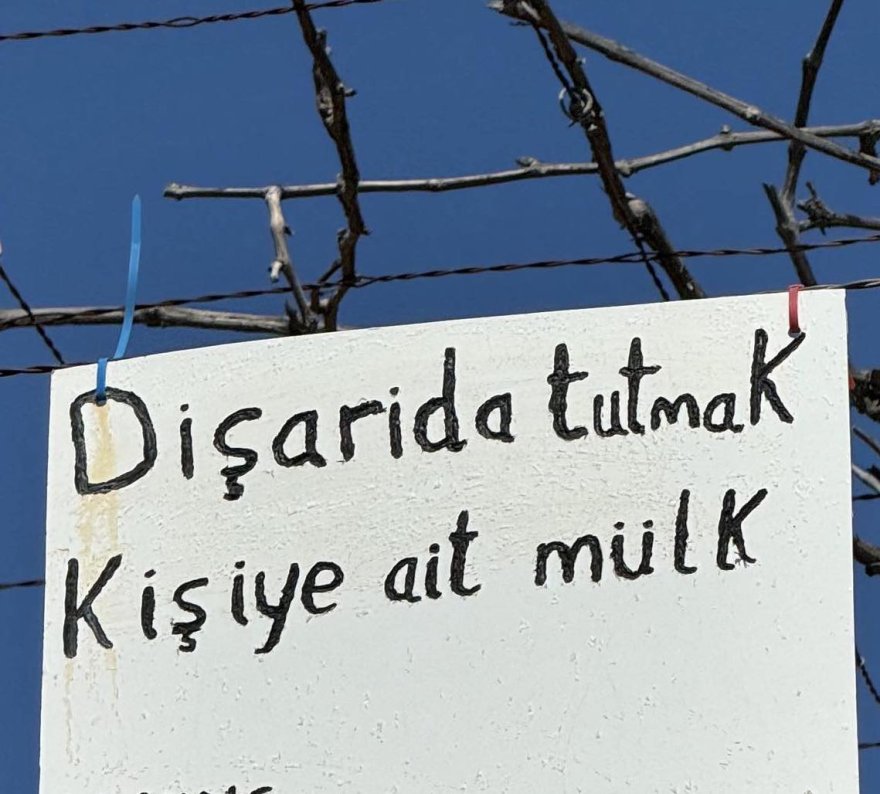 Dişarida tutmak
Kişiye ait mülk